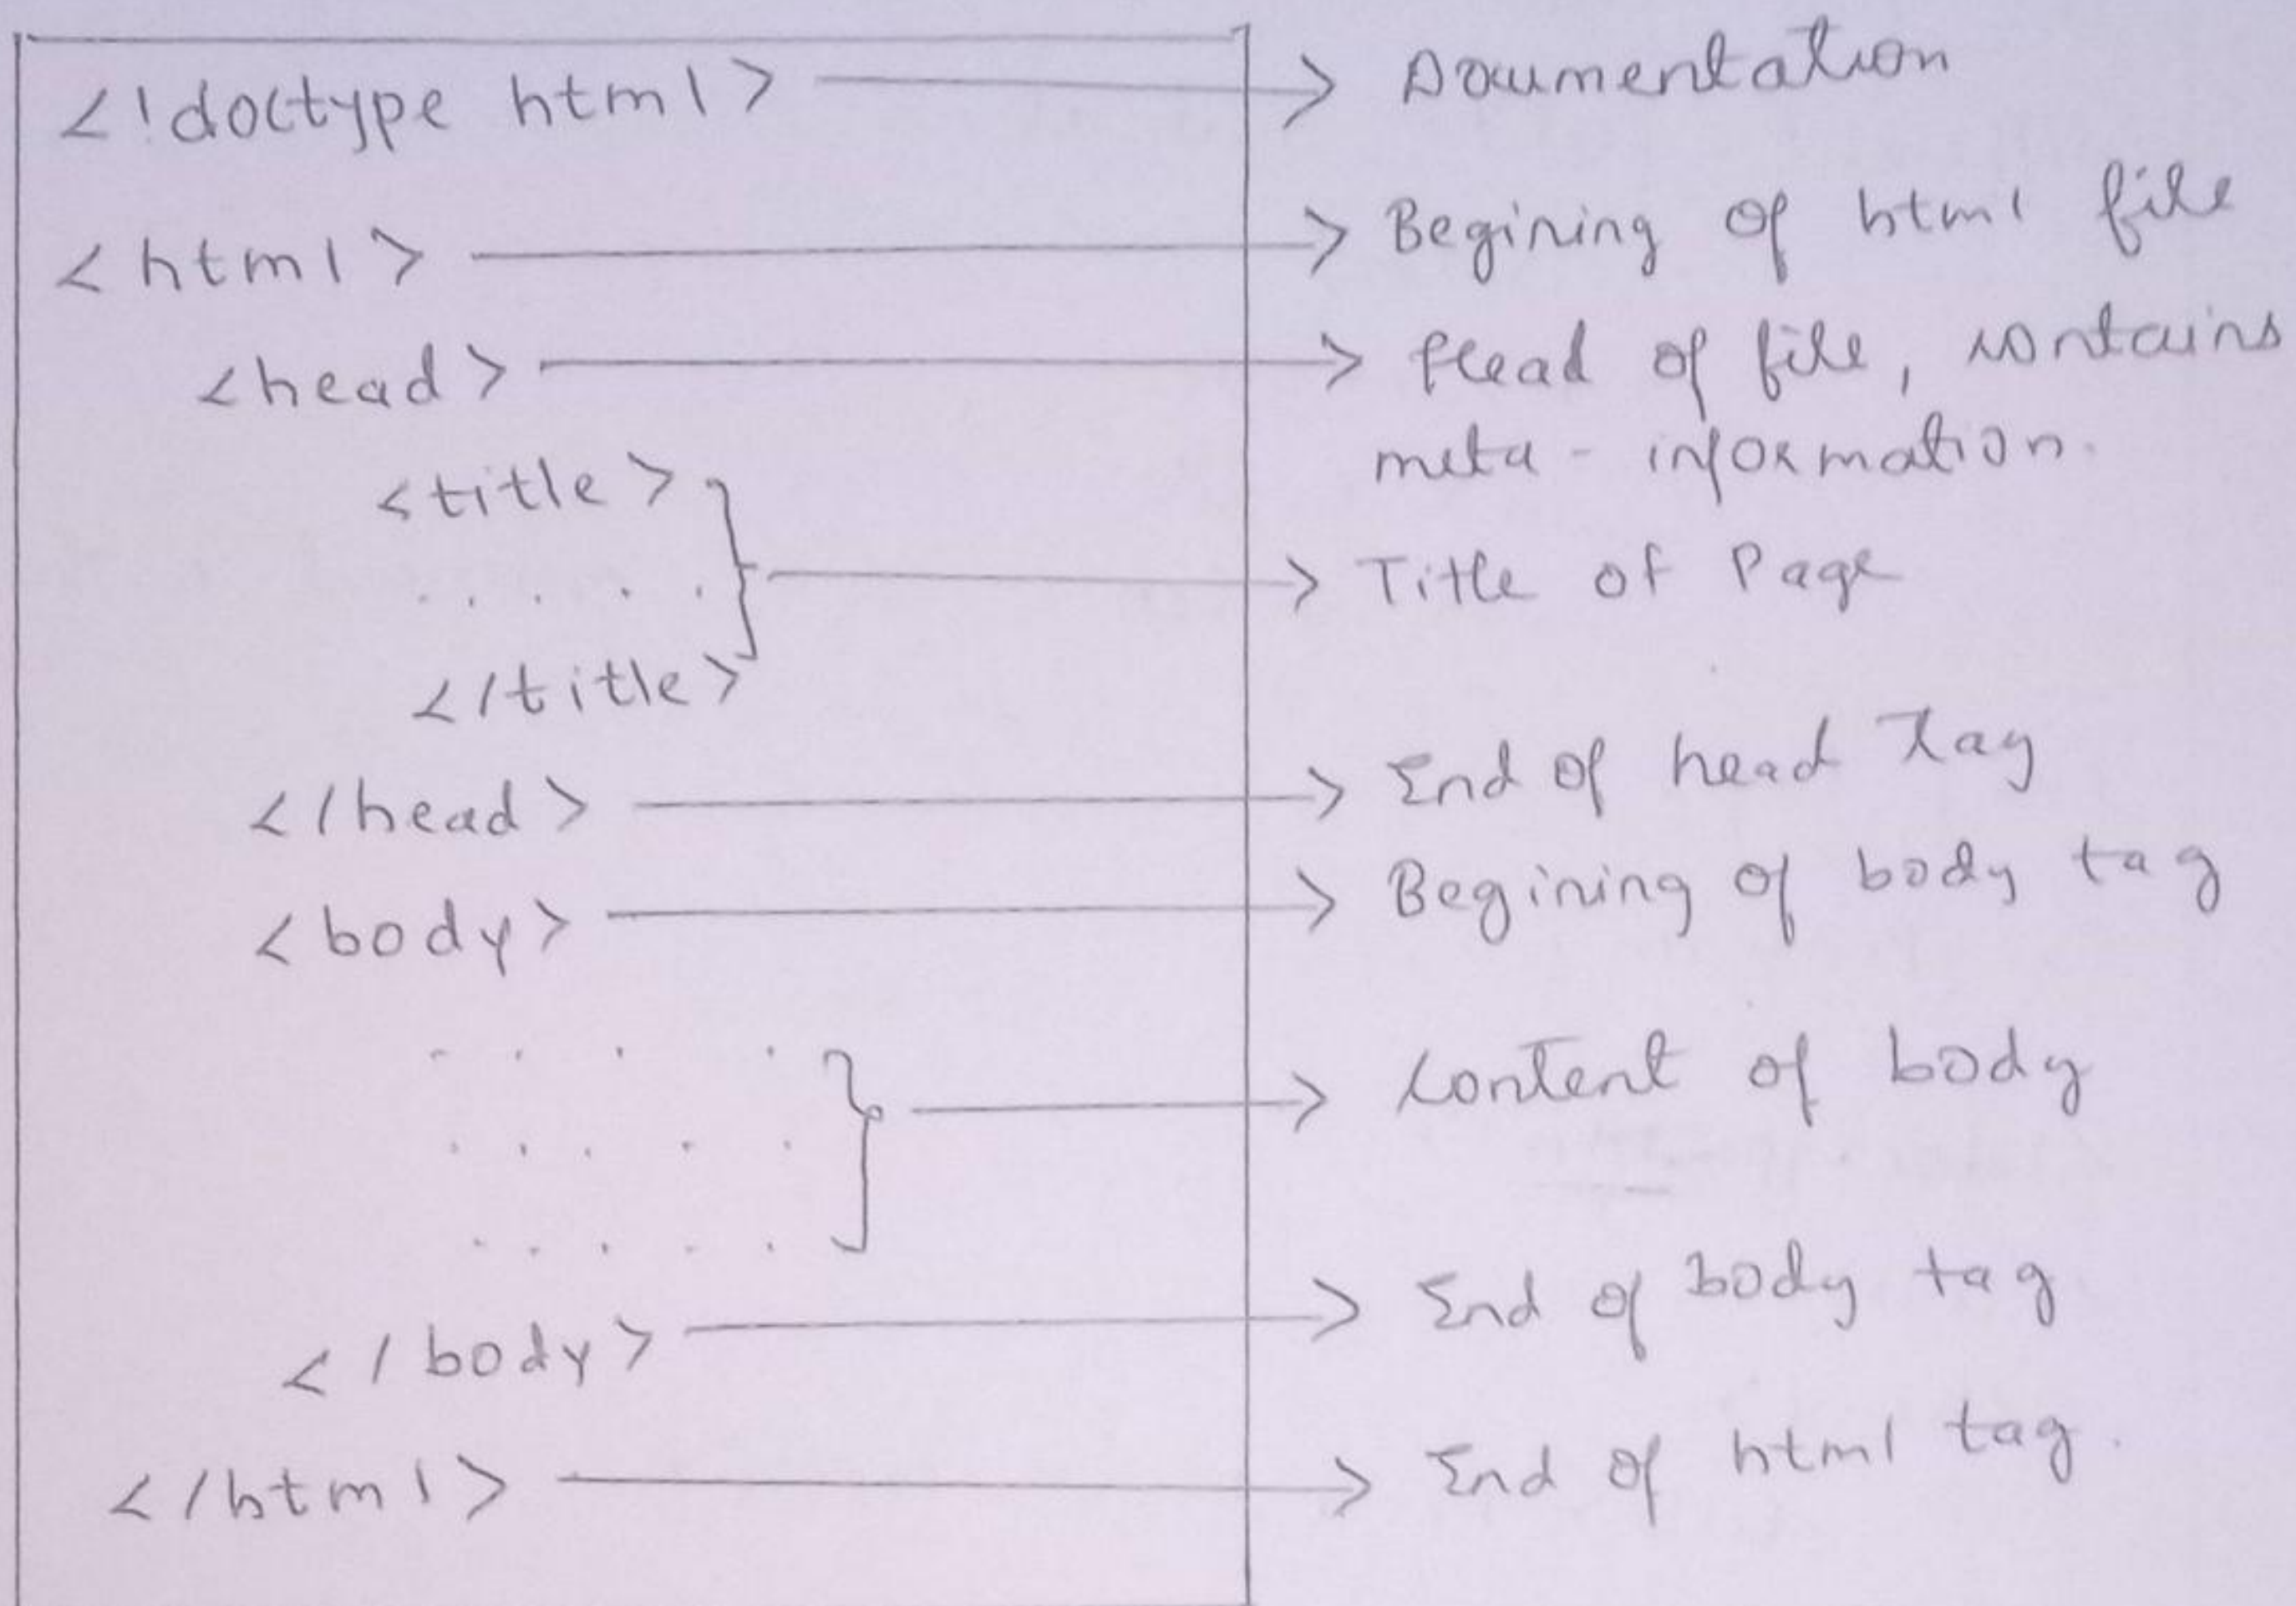 <!doctype html> → Documentation
<html> → Begining of html file
<head> → Head of file, contains
meta - information.
<title>
. . . . . } → Title of Page
</title>
</head> → End of head Tag
<body> → Begining of body tag
. . . .
. . . . . } → Content of body
. . . . .
</body> → End of body tag
</html> → End of html tag.